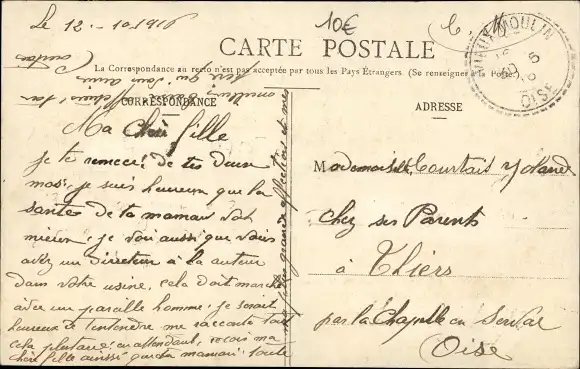 Le 12-10 1916
10€
CARTE POSTALE
La Correspondance au recto n'est pas acceptée par tous les Pays Étrangers. (Se renseigner à la Poste)
VIEUX-MOULIN
OISE
CORRESPONDANCE
ADRESSE
Ma Chère fille
je te remerci de tes deux
mos: je suis heureux que la
santée de ta maman vas
mieux. je voi aussi que vous
avez un directeur à la auteur
dans votre usine, cela doit marché
avec un pareille homme. je serait
heureux de t'entendre me raconté tout
cela plus tard, en attendant, recois ma
chère fille ainssi que ta maman, toute
grande affection et mes
Mademoiselle Courtois Yoland
Chez ses Parents
à Thiers
par la Chapelle en Serval
Oise